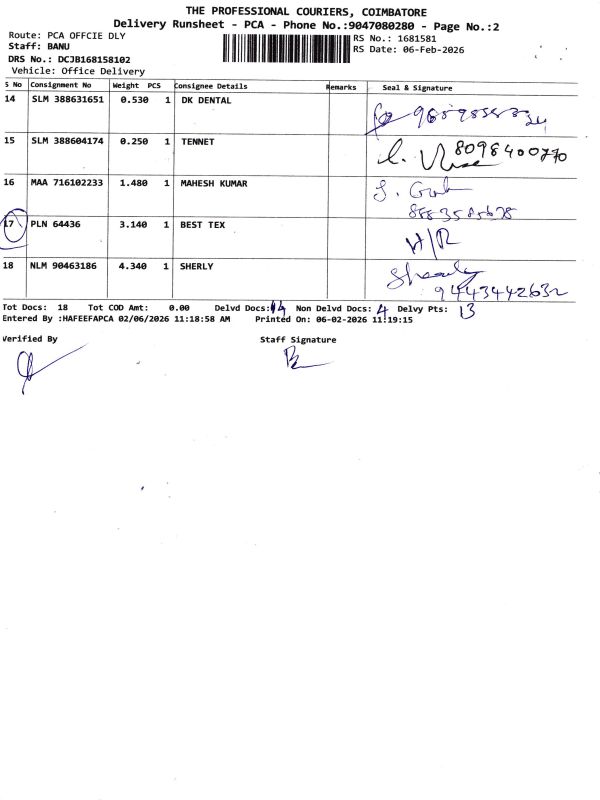 THE PROFESSIONAL COURIERS, COIMBATORE
Delivery Runsheet - PCA - Phone No.:9047080280 - Page No.:2
Route: PCA OFFCIE DLY
RS No.: 1681581
Staff: BANU
RS Date: 06-Feb-2026
DRS No.: DCJB168158102
Vehicle: Office Delivery
S No Consignment No Weight PCS Consignee Details Remarks Seal & Signature
14 SLM 388631651 0.530 1 DK DENTAL
15 SLM 388604174 0.250 1 TENNET 8098400770
16 MAA 716102233 1.480 1 MAHESH KUMAR
17 PLN 64436 3.140 1 BEST TEX H/R
18 NLM 90463186 4.340 1 SHERLY
9443442632
Tot Docs: 18 Tot COD Amt: 0.00 Delvd Docs: 14 Non Delvd Docs: 4 Delvy Pts: 13
Entered By :HAFEEFAPCA 02/06/2026 11:18:58 AM Printed On: 06-02-2026 11:19:15
Verified By Staff Signature